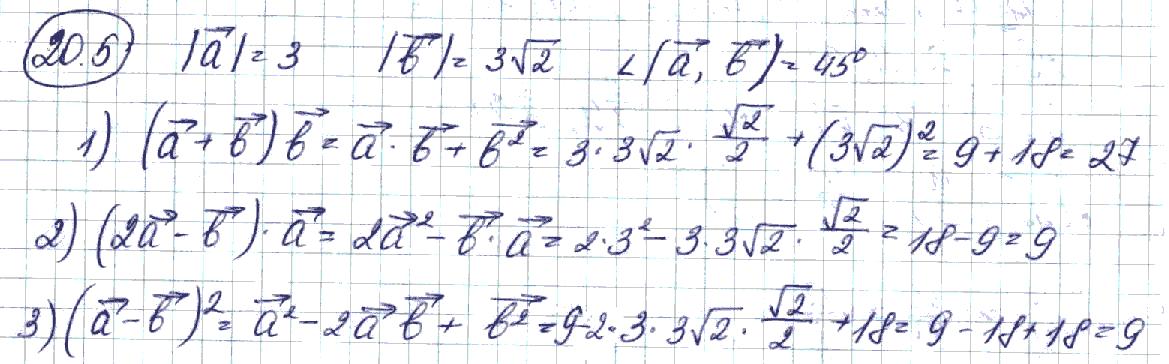 20.5 |a⃗| = 3 |b⃗| = 3√2 ∠(a⃗, b⃗) = 45°
1) (a⃗ + b⃗) b⃗ = a⃗ · b⃗ + b⃗² = 3 · 3√2 · √2/2 + (3√2)² = 9 + 18 = 27
2) (2a⃗ - b⃗) · a⃗ = 2a⃗² - b⃗ · a⃗ = 2 · 3² - 3 · 3√2 · √2/2 = 18 - 9 = 9
3) (a⃗ - b⃗)² = a⃗² - 2a⃗ b⃗ + b⃗² = 9 - 2 · 3 · 3√2 · √2/2 + 18 = 9 - 18 + 18 = 9